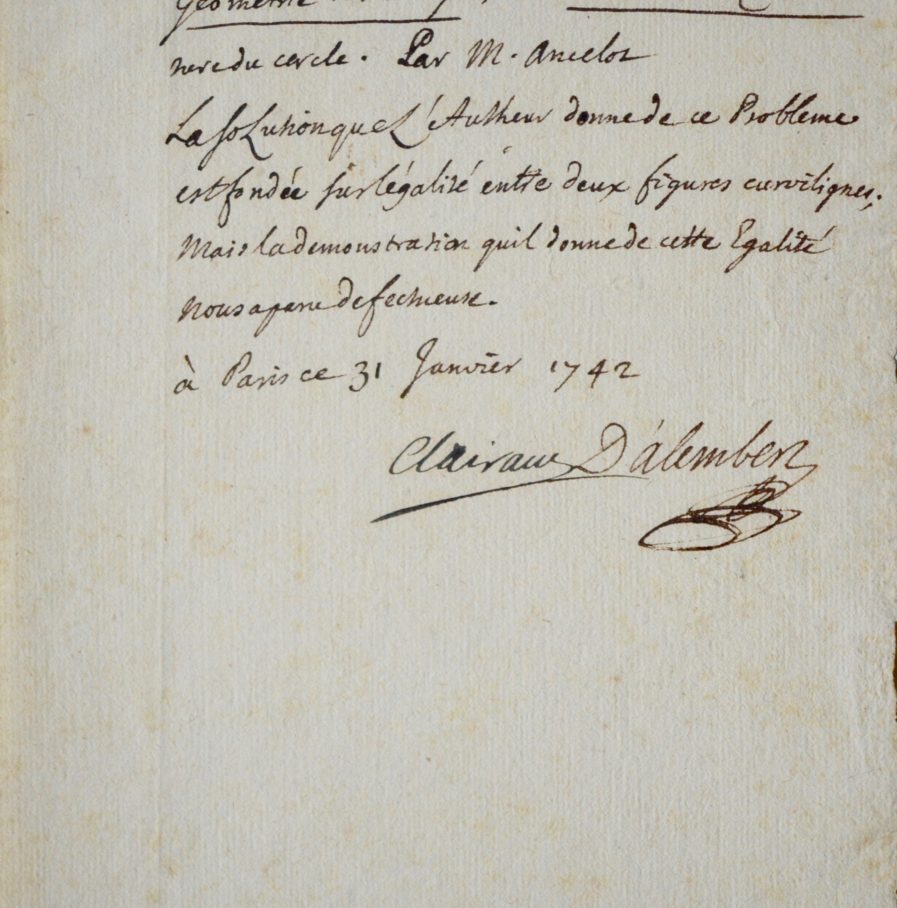 Géometrie
ture du cercle. Par M. Ancelot
La solution que L'Autheur donne de ce Probleme
est fondée sur légalité entre deux figures curvilignes;
Mais la demonstration quil donne de cette Egalité
Nous a paru defectueuse.
à Paris ce 31 Janvier 1742
Clairaut D'alembert